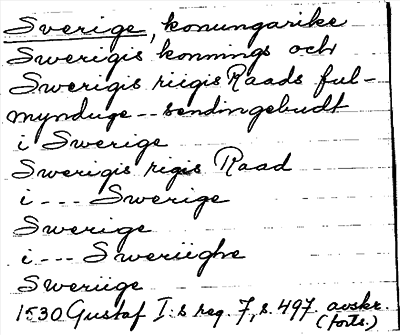 Sverige, konungarike
Swerigis konnings och
Swerigis riigis Raads ful-
mynduge -- sendingebudt
i Swerige
Swerigis rigis Raad
i --- Swerige
Swerige
i --- Sweriighe
Sweriige
1530 Gustaf I:s reg. 7, s. 497 avskr.
(forts.)